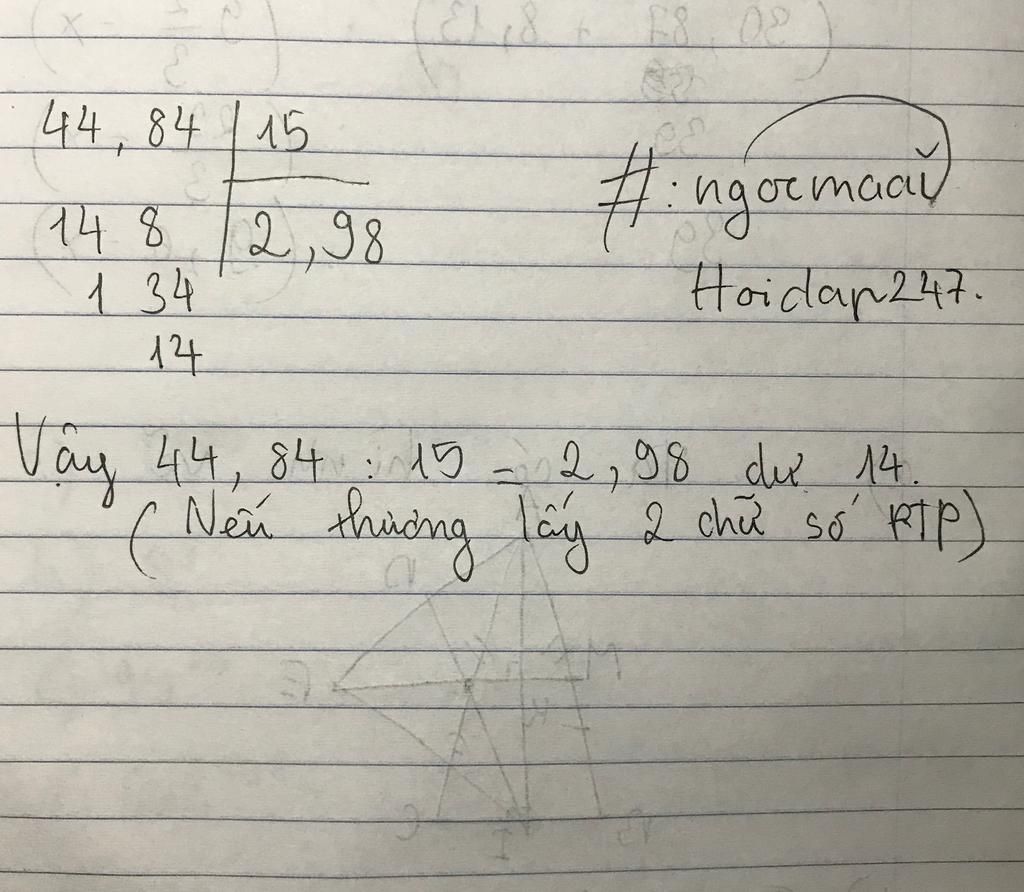 44,84 | 15
14 8 | 2,98
1 34
14
#: ngocmaaĭ
Hoidap247.
Vậy 44,84 : 15 = 2,98 dư 14.
(Nếu thương lấy 2 chữ số PTP)